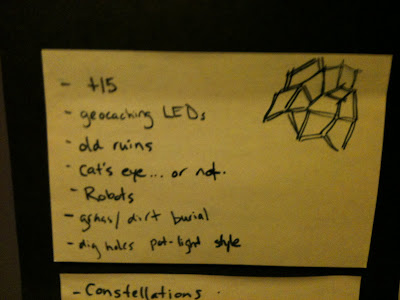 - +15
- geocaching LEDs
- old ruins
- cat's eye... or not.
- Robots
- grass/dirt burial
- dig holes pot-light style
- Constellations